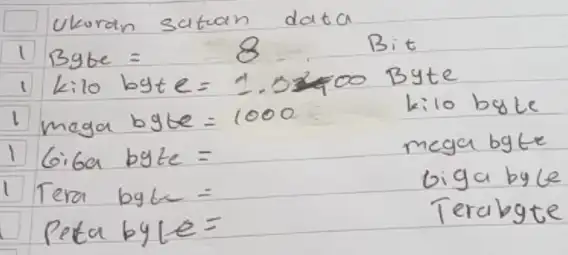 Ukuran satuan data
1 Byte = 8 Bit
1 kilo byte = Byte
1 mega byte = 1000 kilo byte
1 Giga byte = mega byte
1 Tera byte = Giga byte
1 Peta byte = Terabyte